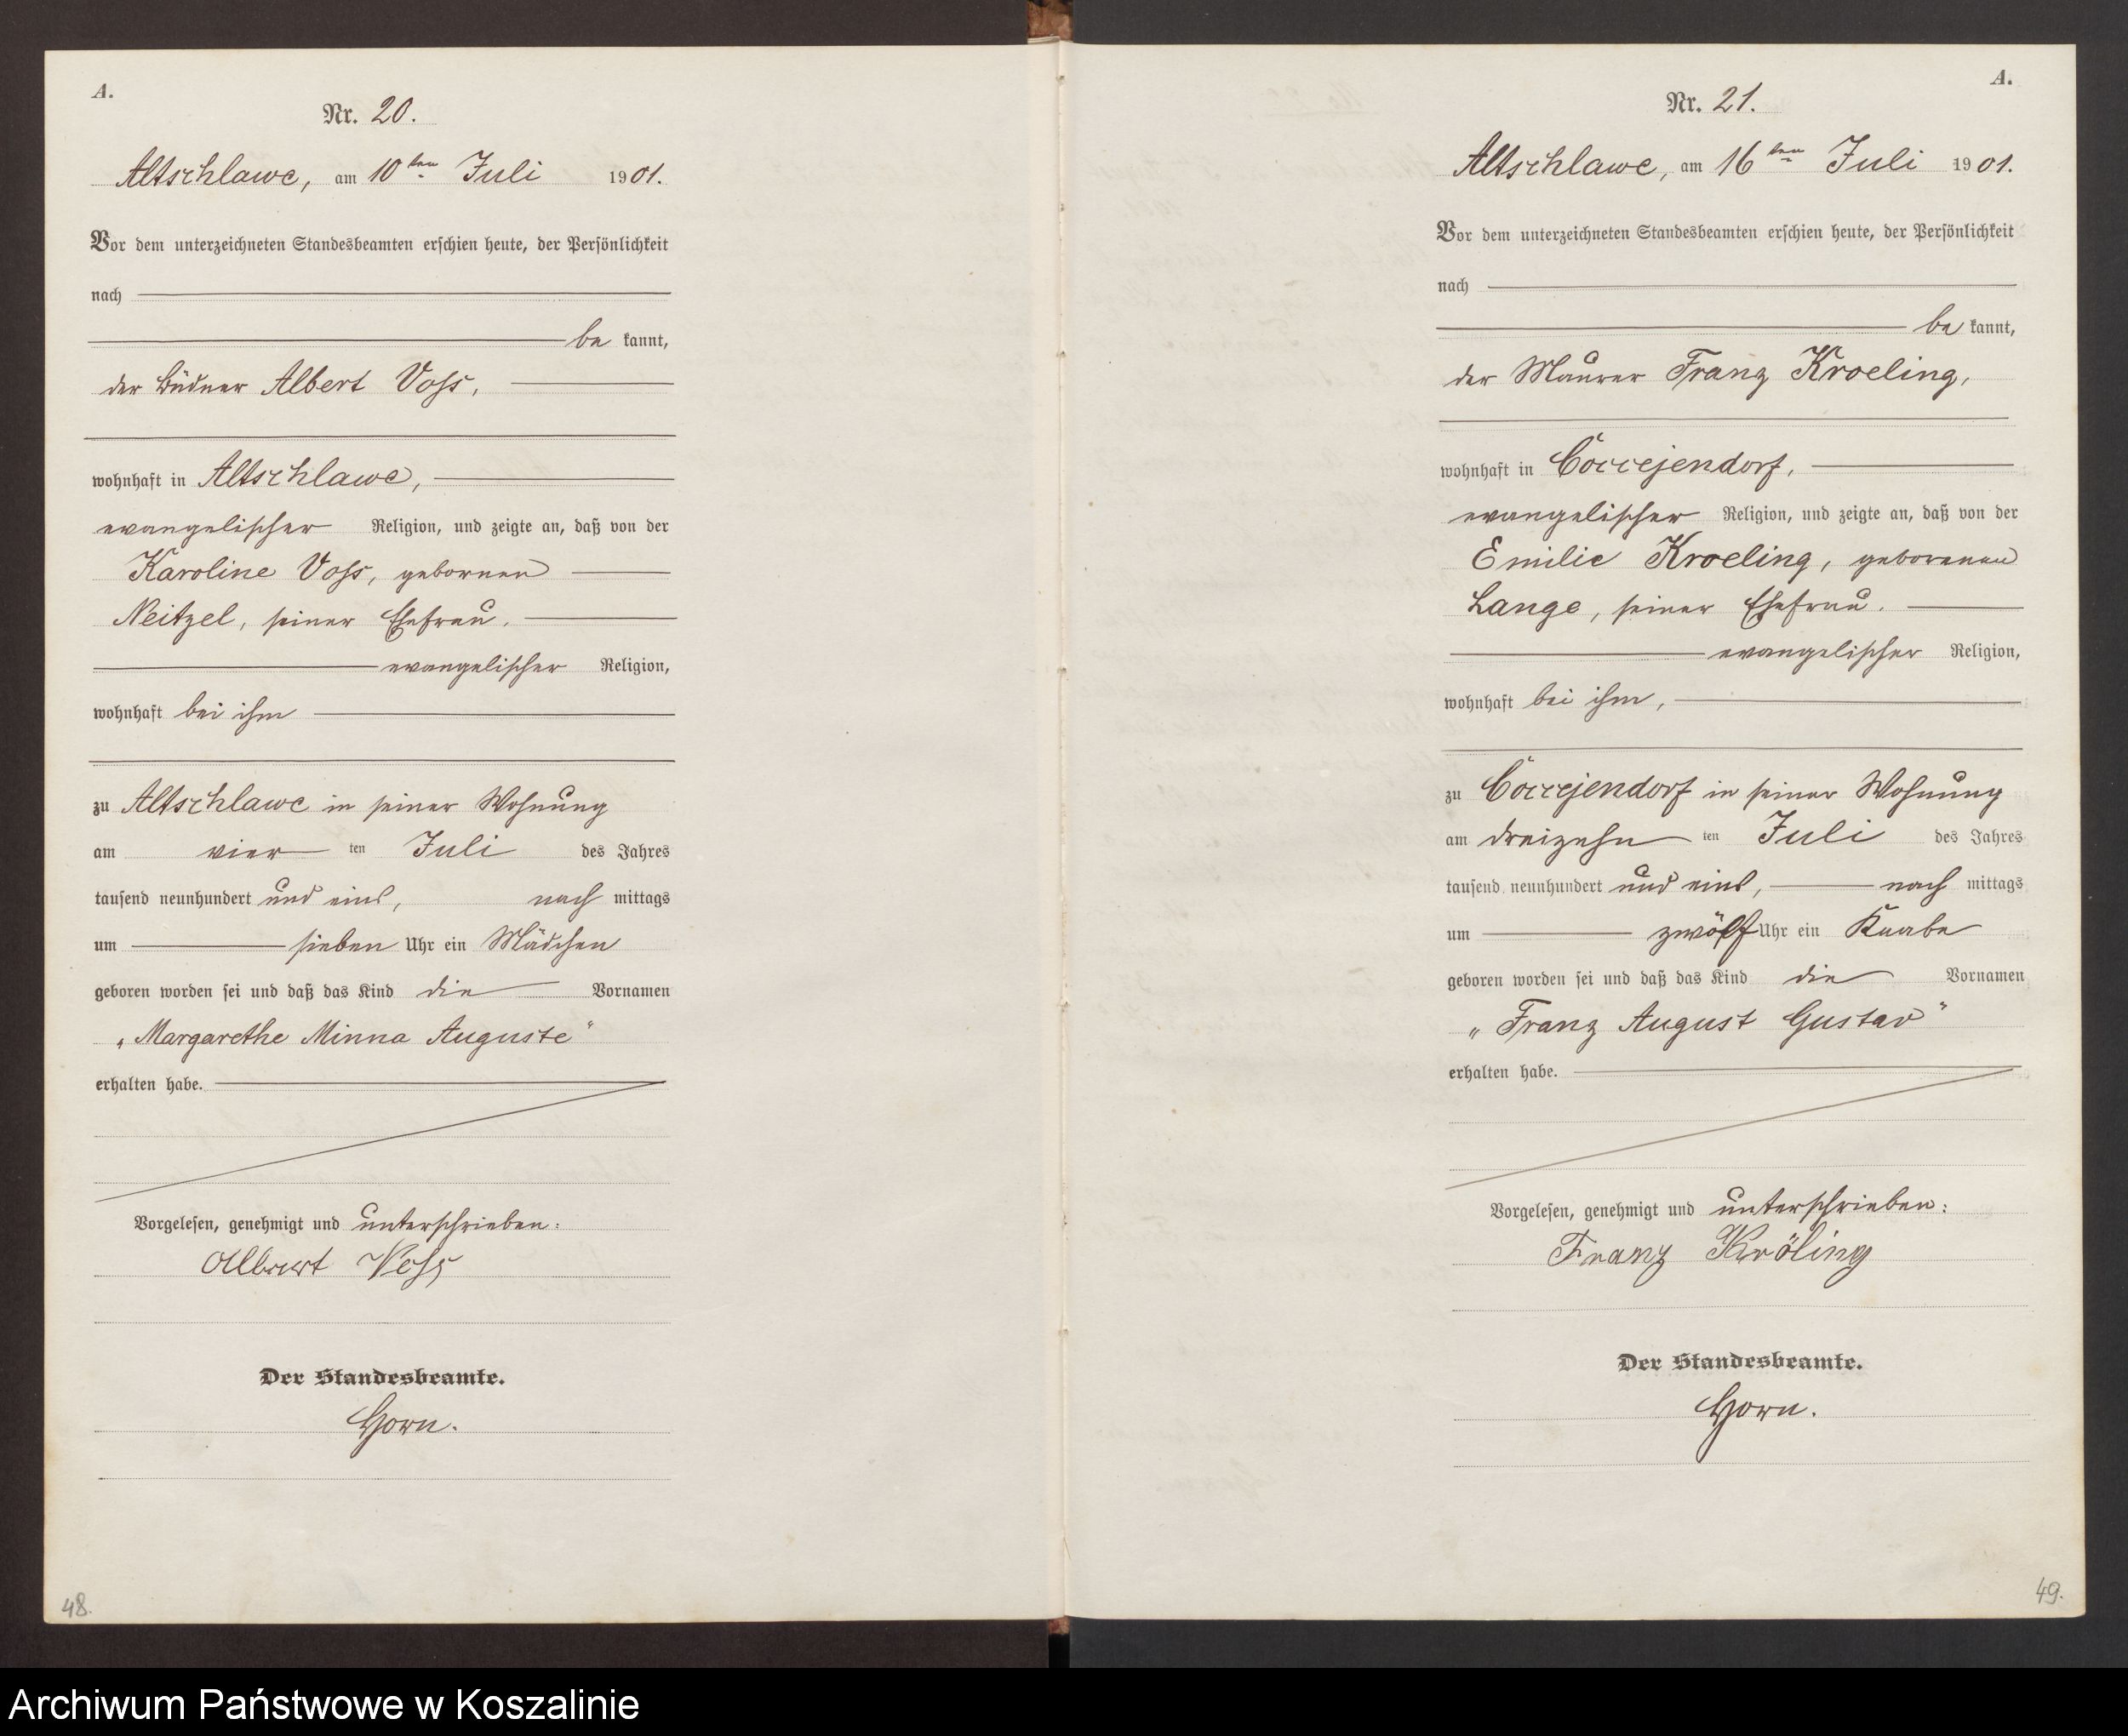 A.
Nr. 20.
Altschlawe, am 10ten Juli 1901.
Vor dem unterzeichneten Standesbeamten erschien heute, der Persönlichkeit
nach
be kannt,
der Büdner Albert Voss,
wohnhaft in Altschlawe,
evangelischer Religion, und zeigte an, daß von der
Karoline Voss, gebornen
Neitzel, seiner Ehefrau.
evangelischer Religion,
wohnhaft bei ihm
zu Altschlawe in seiner Wohnung
am vier ten Juli des Jahres
tausend neunhundert und eins, nach mittags
um sieben Uhr ein Mädchen
geboren worden sei und daß das Kind die Vornamen
„Margarethe Minna Auguste"
erhalten habe.
Vorgelesen, genehmigt und unterschrieben:
Albert Voss
Der Standesbeamte.
Horn.
48.
A.
Nr. 21.
Altschlawe, am 16ten Juli 1901.
Vor dem unterzeichneten Standesbeamten erschien heute, der Persönlichkeit
nach
be kannt,
der Maurer Franz Kroeling,
wohnhaft in Coccejendorf,
evangelischer Religion, und zeigte an, daß von der
Emilie Kroeling, geborenen
Lange, seiner Ehefrau.
evangelischer Religion,
wohnhaft bei ihm,
zu Coccejendorf in seiner Wohnung
am dreizehn ten Juli des Jahres
tausend neunhundert und eins, nach mittags
um zwölf Uhr ein Knabe
geboren worden sei und daß das Kind die Vornamen
„Franz August Gustav"
erhalten habe.
Vorgelesen, genehmigt und unterschrieben:
Franz Kröling
Der Standesbeamte.
Horn.
49.
Archiwum Państwowe w Koszalinie